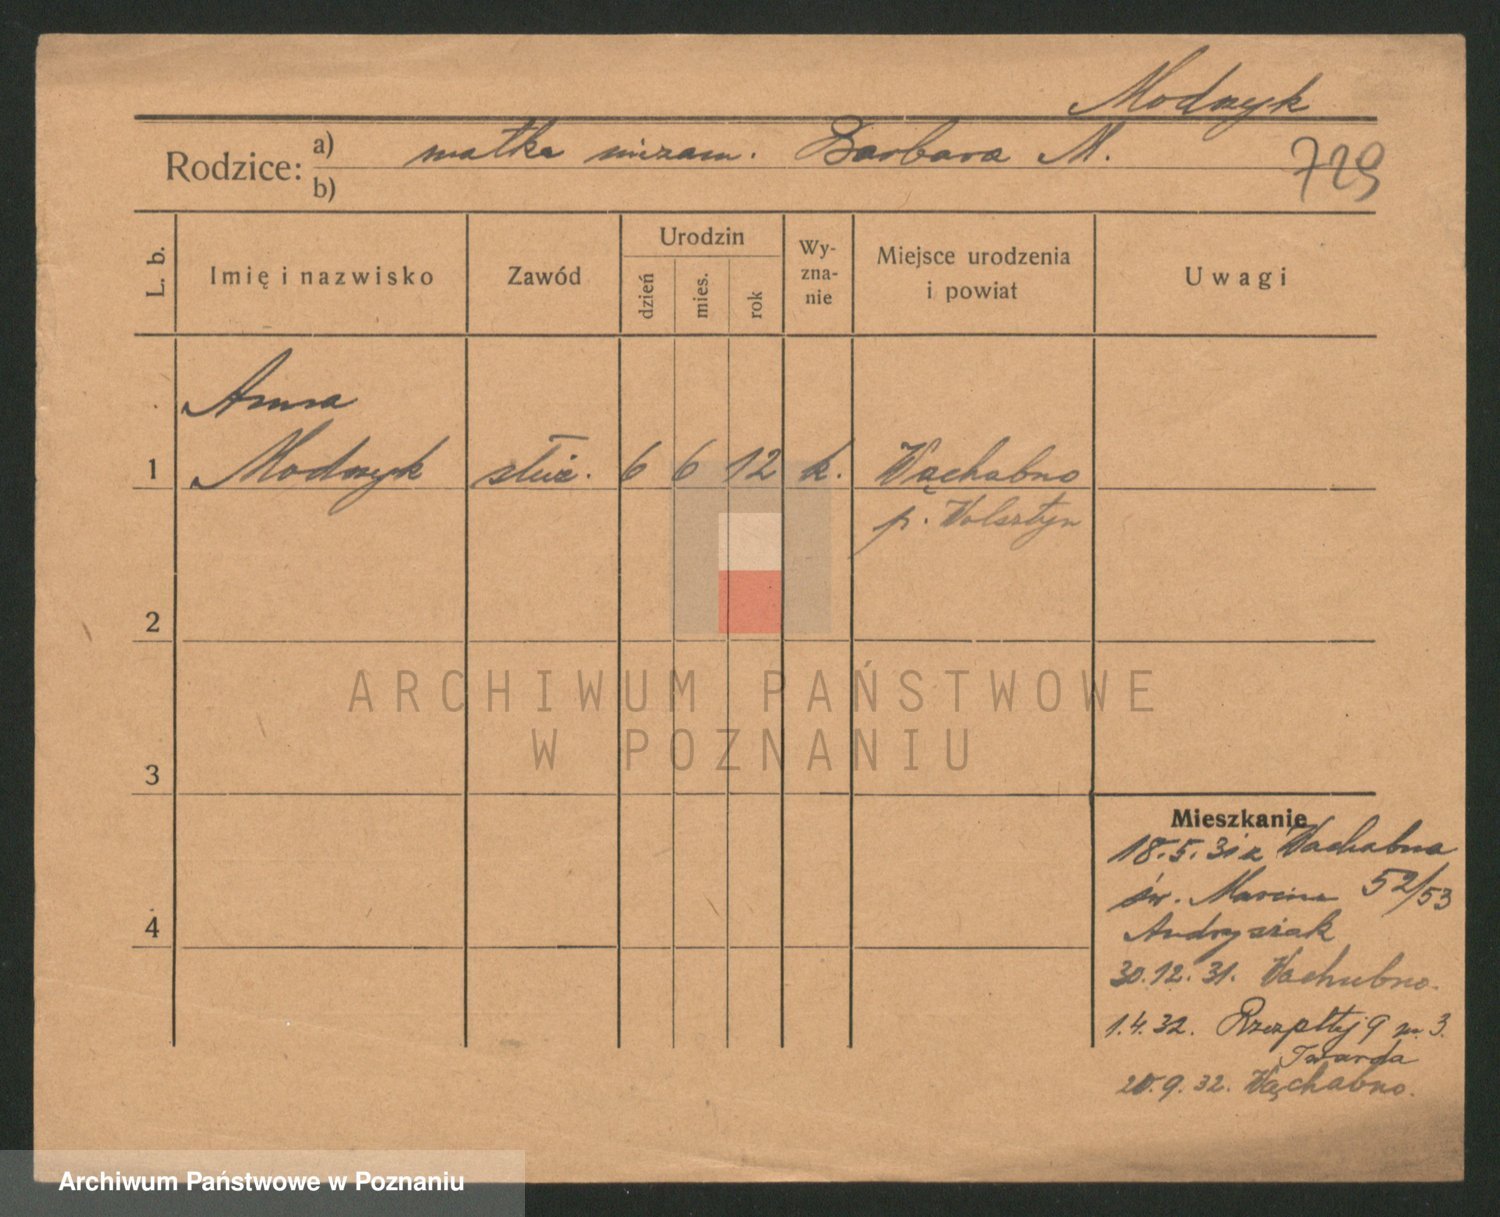 Modrzyk
Rodzice: a) matka niezam. Barbara M.
b)
729
L. b. Imię i nazwisko Zawód Urodzin dzień mies. rok Wy-zna-nie Miejsce urodzenia i powiat Uwagi
Anna
1 Modrzyk służ. 6 6 12 k. Wąchabno
p. Wolsztyn
2
3
4
ARCHIWUM PAŃSTWOWE
W POZNANIU
Mieszkanie
18.5.31 z Wachabna
św. Marcin 52/53
Andrysiak
30.12.31. Wachubno.
1.4.32. Rzezpltej 9 m. 3.
Twarda
20.9.32. Wąchabno.
Archiwum Państwowe w Poznaniu